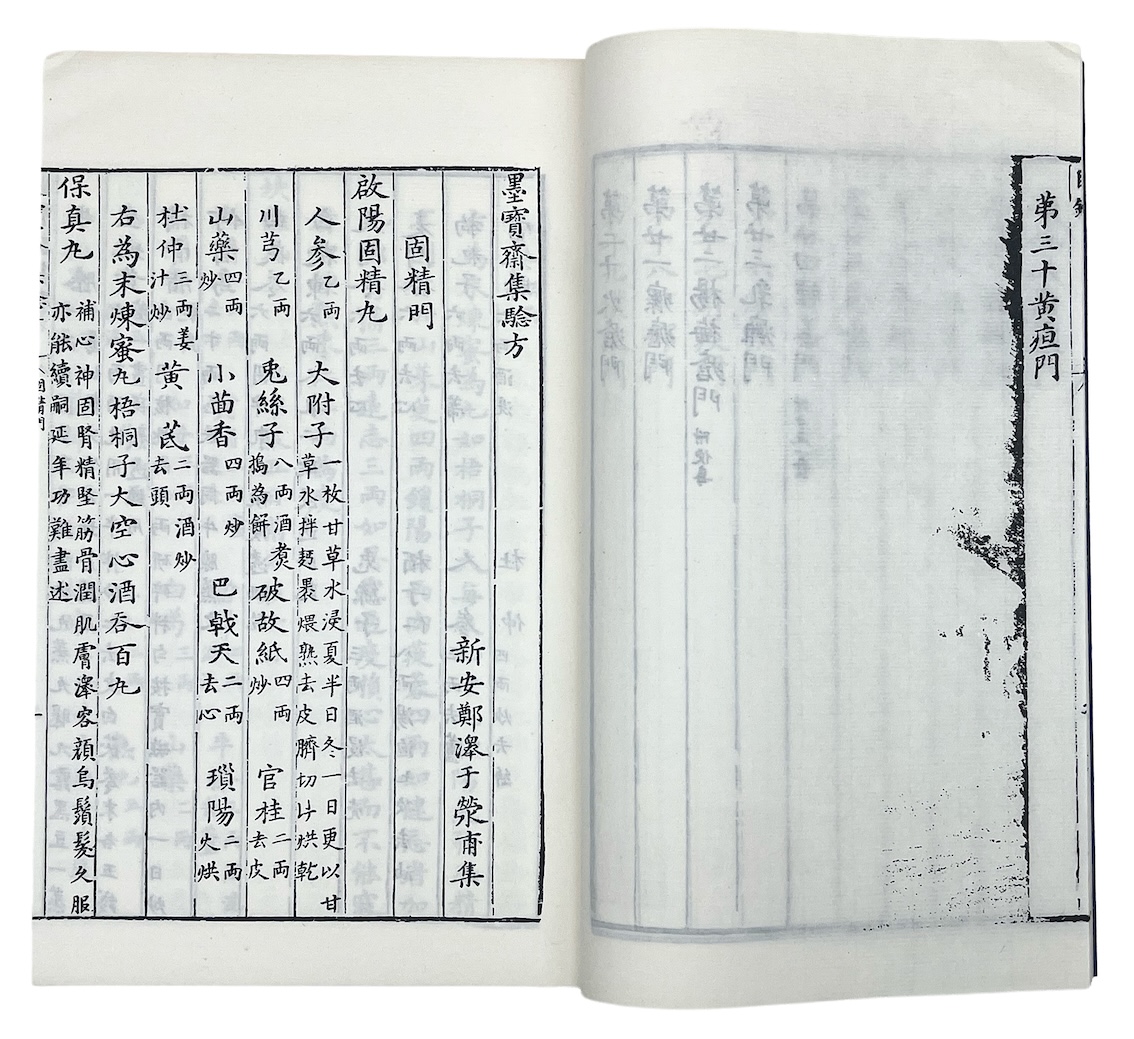 第三十黄疸門
墨寶齋集騐方
新安鄭澤于滎甫集
固精門
啟陽固精丸
人參乙両 大附子一枚甘草水浸夏半日冬一日更以甘草水拌麪裹煨熟去皮臍切片烘乾
川芎乙両 兎絲子八両酒煑搗為餅 破故紙四両炒 官桂二両去皮
山藥四両炒 小茴香四両炒 巴戟天二両去心 瑣陽二両火烘
杜仲三両姜汁炒 黄芪二両酒炒去頭
右為末煉蜜丸梧桐子大空心酒吞百丸
保真丸 補心神固腎精堅筋骨潤肌膚澤容顔烏鬚髮久服亦能續嗣延年功難盡述
固精門